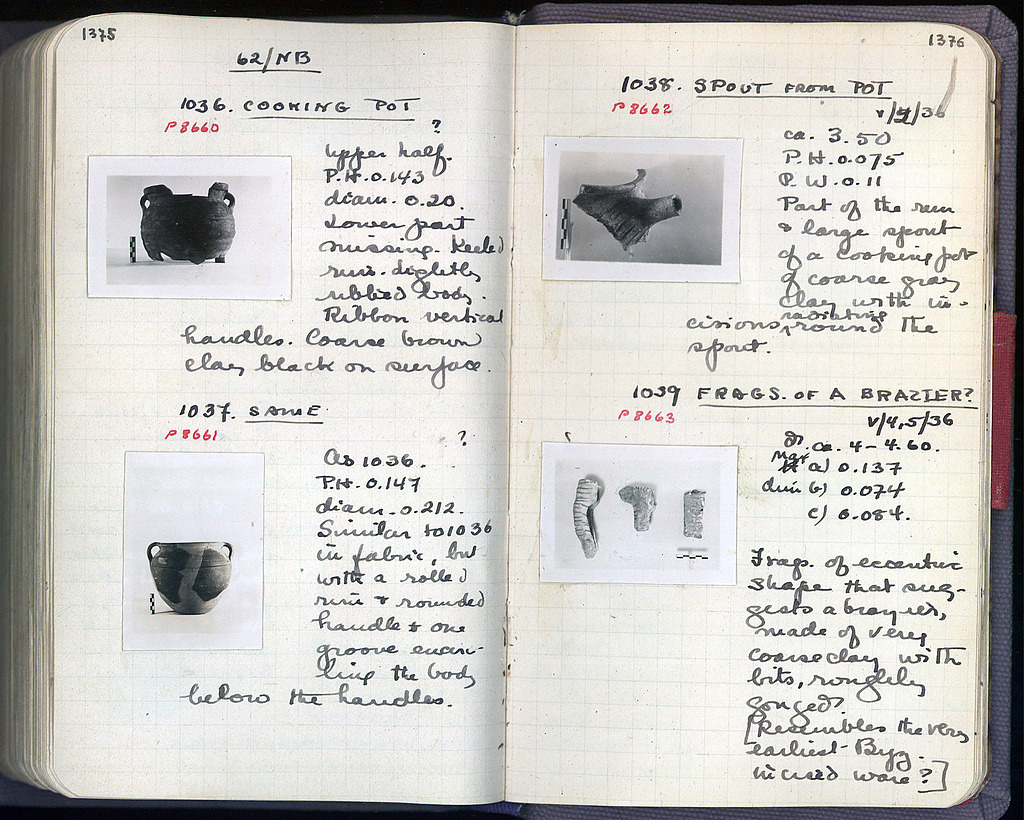 1375
62/NB
1036. COOKING POT
P 8660
?
Upper half.
P.H. 0.143
diam. 0.20.
Lower part
missing. Keeled
rim. Slightly
ribbed body.
Ribbon vertical
handles. Coarse brown
clay black on surface.
1037. SAME
P 8661
?
As 1036.
P.H. 0.147
diam. 0.212.
Similar to 1036
in fabric, but
with a rolled
rim & rounded
handle & one
groove encir-
ling the body
below the handles.
1376
1038. SPOUT FROM POT
P 8662
v/4/36
ca. 3.50
P.H. 0.075
P.W. 0.11
Part of the rim
& large spout
of a cooking pot
of coarse gray
clay with in-
radiating
cisions, round the
spout.
1039 FRAGS. OF A BRAZIER?
P 8663
v/4,5/36
ca. 4 – 4.60.
Max a) 0.137
dim b) 0.074
c) 0.084.
Frags. of eccentric
shape that sug-
gests a brazier,
made of very
coarse clay with
bits, roughly
gouged.
[Resembles the very
earliest Byz.
incised ware?]